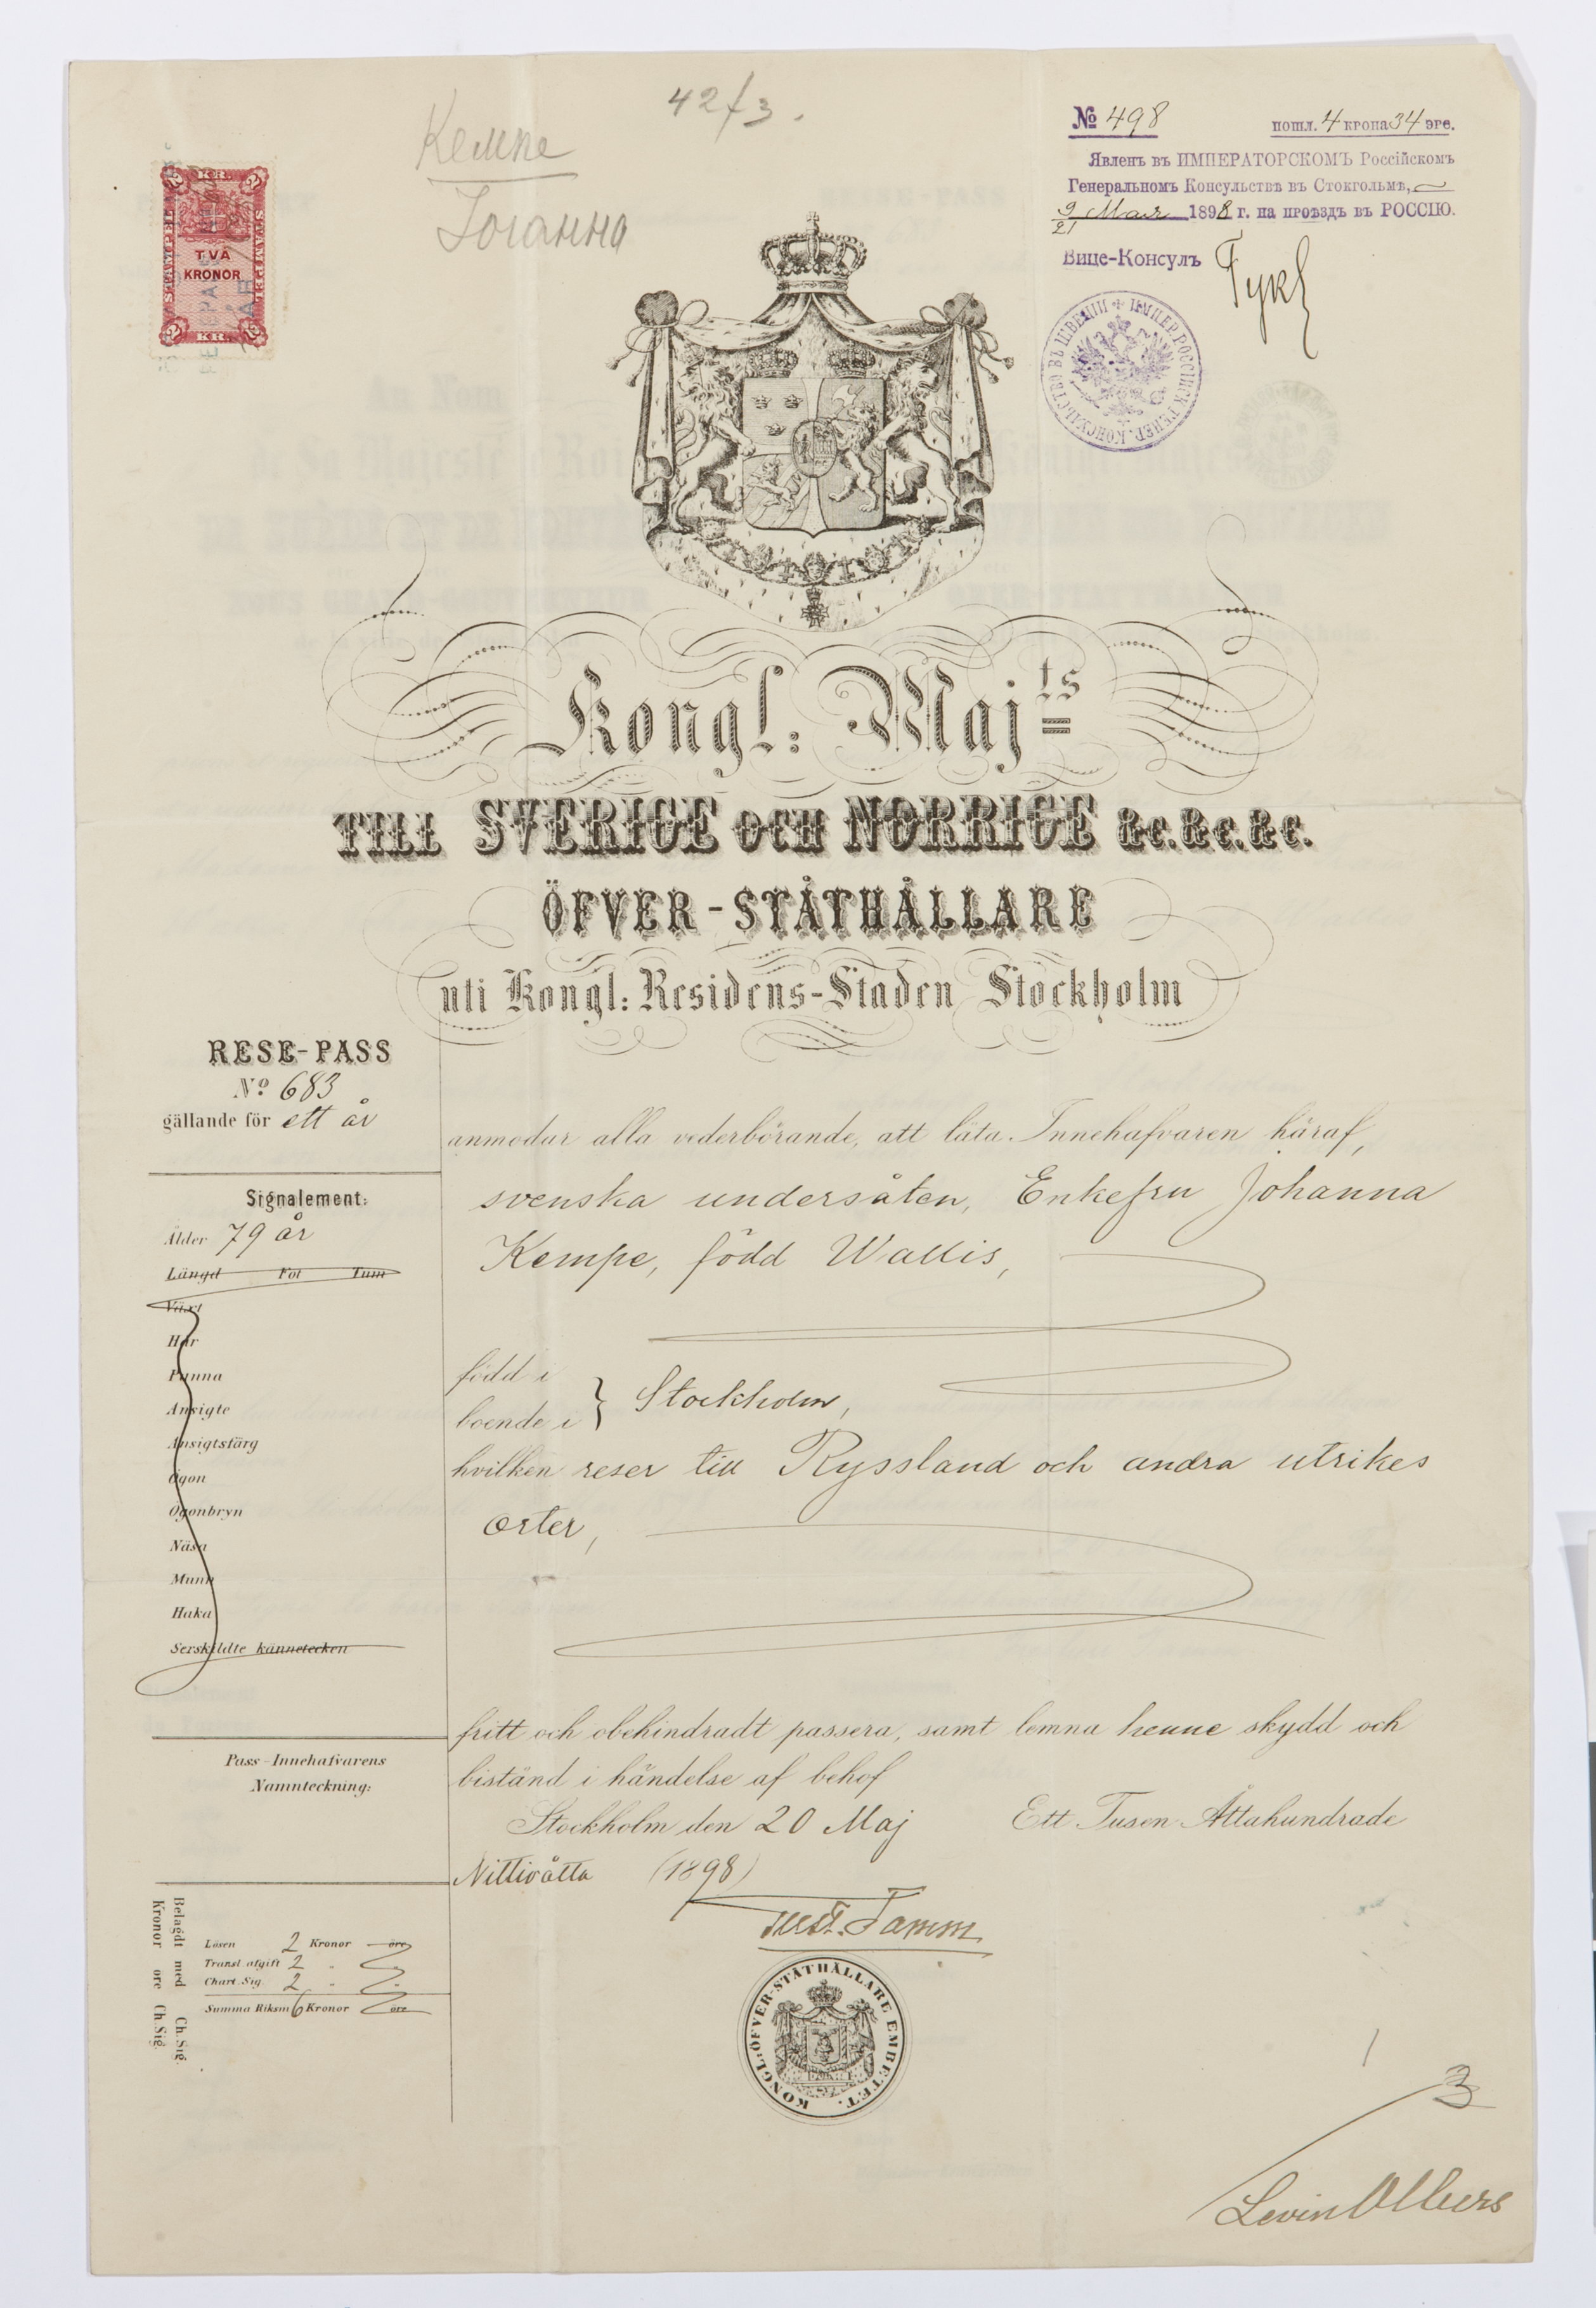 42/3.
Кемпе
Іоганна
№ 498 пошл. 4 крона 34 эре.
Явленъ въ ИМПЕРАТОРСКОМЪ Россійскомъ
Генеральномъ Консульствѣ въ Стокгольмѣ,
9/21 Мая 1898 г. на проѣздъ въ РОССІЮ.
Вице-Консулъ
ИМПЕР. РОССІЙСК. ГЕНЕР. КОНСУЛЬСТВО ВЪ ШВЕЦІИ
2 KR. 2
STÄMPEL STÄMPEL
TVÅ
KRONOR
2 KR. 2
Kongl: Maj:ts
TILL SVERIGE OCH NORRIGE &c. &c. &c.
ÖFVER-STÅTHÅLLARE
uti Kongl: Residens-Staden Stockholm
RESE-PASS
No 683
gällande för ett år
Signalement:
Ålder 79 år
Längd Fot Tum
Växt
Hår
Panna
Ansigte
Ansigtsfärg
Ögon
Ögonbryn
Näsa
Munn
Haka
Serskildte kännetecken
Pass-Innehafvarens
Namnteckning:
Belagdt med Ch. Sig.
Kronor öre Ch. Sig.
Lösen 2 Kronor öre
Transl afgift 2 "
Chart. Sig. 2 "
Summa Riksm 6 Kronor öre
anmodar alla vederbörande, att låta Innehafvaren häraf,
svenska undersåten, Enkefru Johanna
Kempe, född Wallis,
född i
boende i } Stockholm,
hvilken reser till Ryssland och andra utrikes
orter,
fritt och obehindradt passera, samt lemna henne skydd och
bistånd i händelse af behof
Stockholm den 20 Maj Ett Tusen Åttahundrade
Nittioåtta (1898)
Tamm
KONGL: ÖFVER-STÅTHÅLLARE EMBETET.
3
Levin Ollners